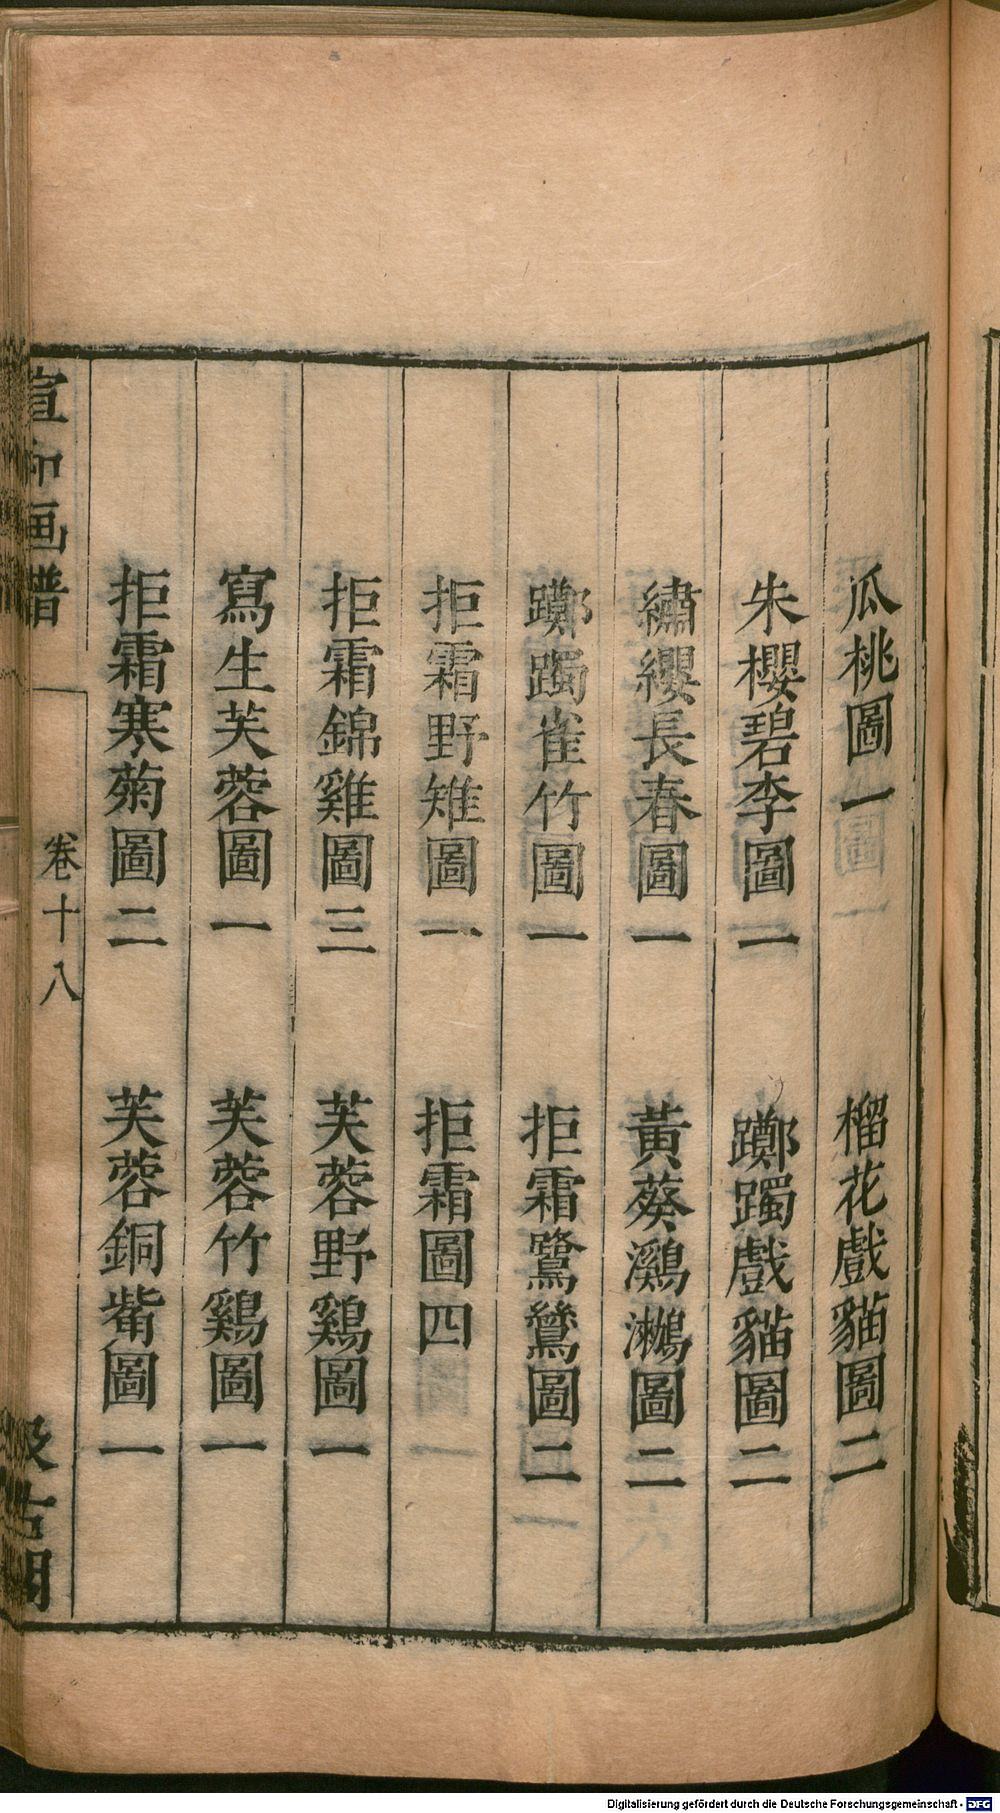 瓜桃圖一　榴花戲貓圖二
朱櫻碧李圖一　躑躅戲貓圖二
繡纓長春圖一　黃葵鸂鷘圖二
躑躅雀竹圖一　拒霜鷺鷥圖二
拒霜野雉圖一　拒霜圖四
拒霜錦雞圖三　芙蓉野鷄圖一
寫生芙蓉圖一　芙蓉竹鷄圖一
拒霜寒菊圖二　芙蓉銅觜圖一
宣和画譜　卷十八　汲古閣
Digitalisierung gefördert durch die Deutsche Forschungsgemeinschaft - DFG